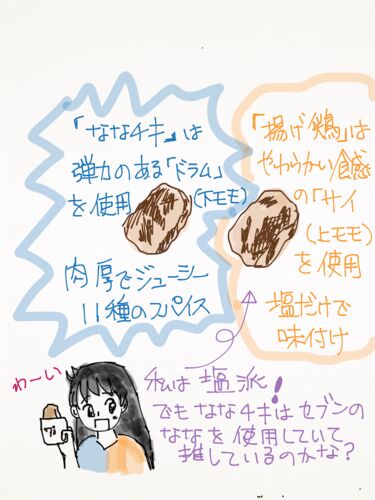 「ななチキ」は
弾力のある「ドラム」
(下モモ)
を使用
肉厚でジューシー
11種のスパイス
「揚げ鶏」は
やわらかい食感
の「サイ
(上モモ)
を使用
塩だけで
味付け
わーい
私は塩派!
でもななチキはセブンの
ななを使用していて
推しているのかな?